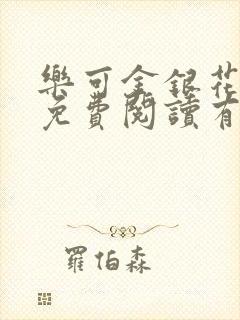 樂可金銀花
免費閱讀有
羅伯森